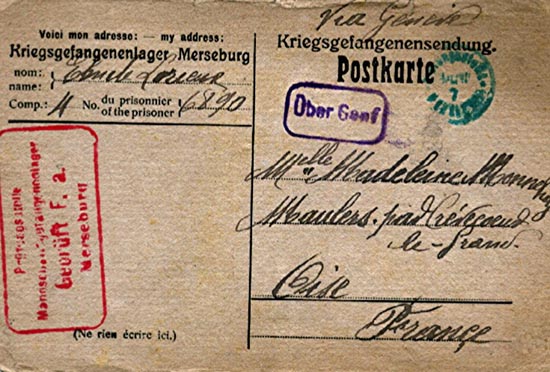 Via Genève
Voici mon adresse: — my address:
Kriegsgefangenenlager Merseburg
nom:
name:
Emile Lorieux
Comp.: 4 No. du prisonnier
of the prisoner 6890
Kriegsgefangenensendung.
Postkarte
Über Genf
Mannschaftsgefangenenlager
Geprüft F. a.
Merseburg
Melle Madeleine
Maulers par Crèvecoeur
le-Grand
Oise
France
(Ne rien écrire ici.)